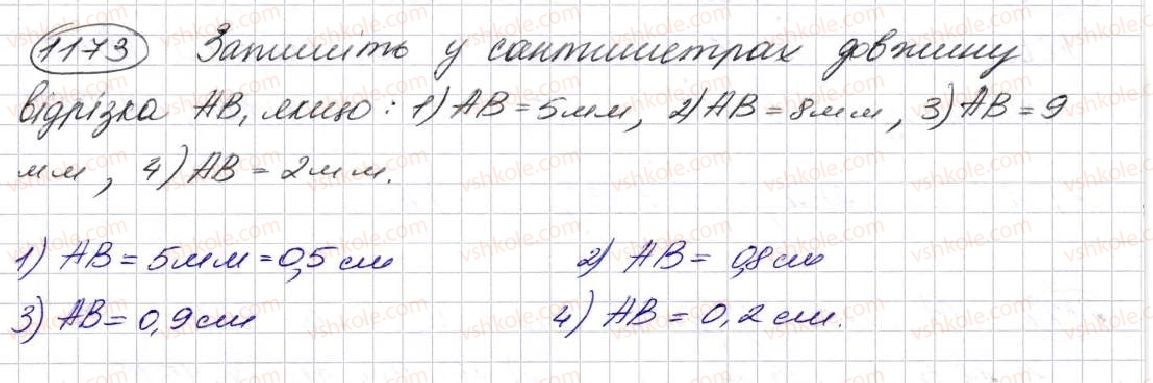 1173 Запишіть у сантиметрах довжину
відрізка AB, якщо: 1) AB = 5мм, 2) AB = 8мм, 3) AB = 9
мм, 4) AB = 2мм.
1) AB = 5мм = 0,5 см 2) AB = 0,8 см
3) AB = 0,9 см 4) AB = 0,2 см.